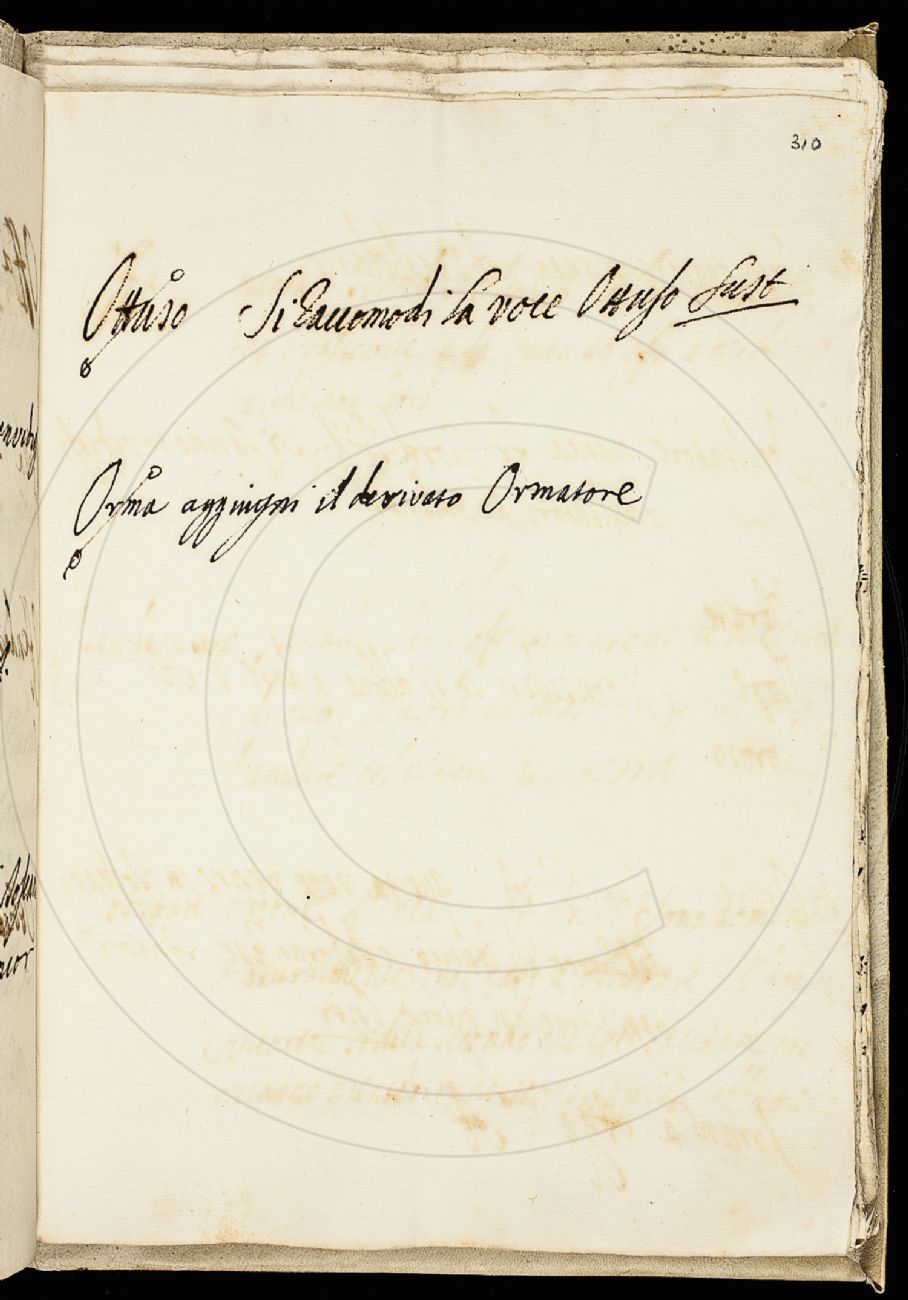 310
Ottuso Si Raccomodi la voce Ottuso Sust
Orma aggiugni il derivato Ormatore